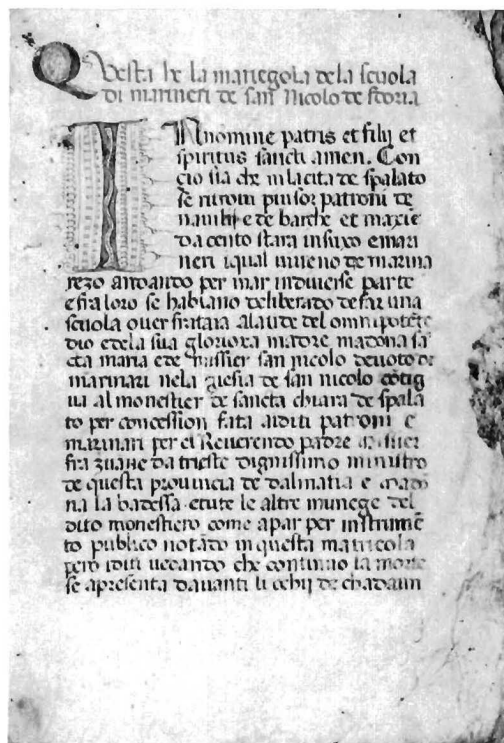 Questa he la mariegola dela scuola
di marineri de san Nicolo de storia
In nomine patris et filij et
spiritus sancti amen. Con
cio sia che in la cita de spalato
se ritrovi piusor patroni de
navilij e de barche et maxīe
da cento stara in suxo e mari
neri i qual viveno de marina
rezo andando per mar in diverse parte
e fra loro se habiano deliberado de far una
scuola over frataia a laude del omnipotēte
dio e dela sua glorioxa madre madona sā
cta maria e de missier san nicolo devoto di
marinari nela giesia de san nicolo cōtig
ua al monestier de sancta chiara de spala
to per concession fata ai diti patroni e
marinari per el Reverendo padre missier
fra zuane da trieste dignissimo ministro
de questa provincia de dalmatia e mado
na la badessa. e tute le altre munege del
dito monestiero como apar per instrumē
to publico notado in questa matricola
pero i diti vezando che continuo la morte
se apresenta davanti li ochij de chadaun